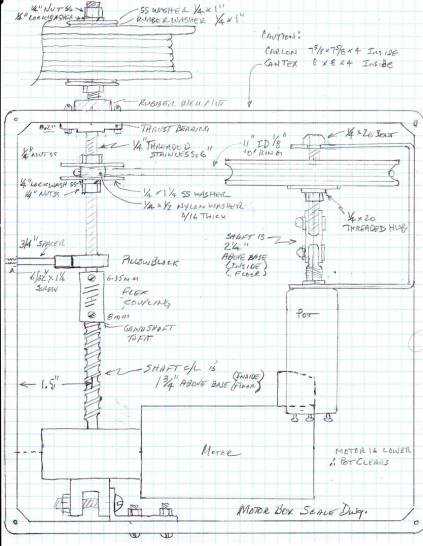 1/4" NUT SS
1/4" LOCKWASHER
SS WASHER 1/4 x 1"
RUBBER WASHER 1/4 x 1"
CAUTION:
CARLON 7 5/8 x 7 5/8 x 4 INSIDE
CANTEX 8 x 8 x 4 INSIDE
RUBBER
THRUST BEARING
1/4" THREADED
STAINLESS x 6"
1/4" NUT SS
11" ID 1/8"
"O" RING
1/4 x 20 BOLT
1/4" LOCKWASH SS
1/4" NUT SS
1/4 x 1 1/4 SS WASHER
1/4 x 1/2 NYLON WASHER
3/16 THICK
1/4 x 20
THREADED HUB
SHAFT IS
2 1/4"
ABOVE BASE
(INSIDE)
(FLOOR)
3/4" SPACER
PILLOW BLOCK
SCREW
6.35mm
FLEX
COUPLING
8mm
GRIND SHAFT
TO FIT
POT
SHAFT C/L IS
1 3/4" ABOVE BASE (INSIDE FLOOR)
1.5"
MOTOR
MOTOR IS LOWER
∴ POT CLEARS
MOTOR BOX SCALE DWG.